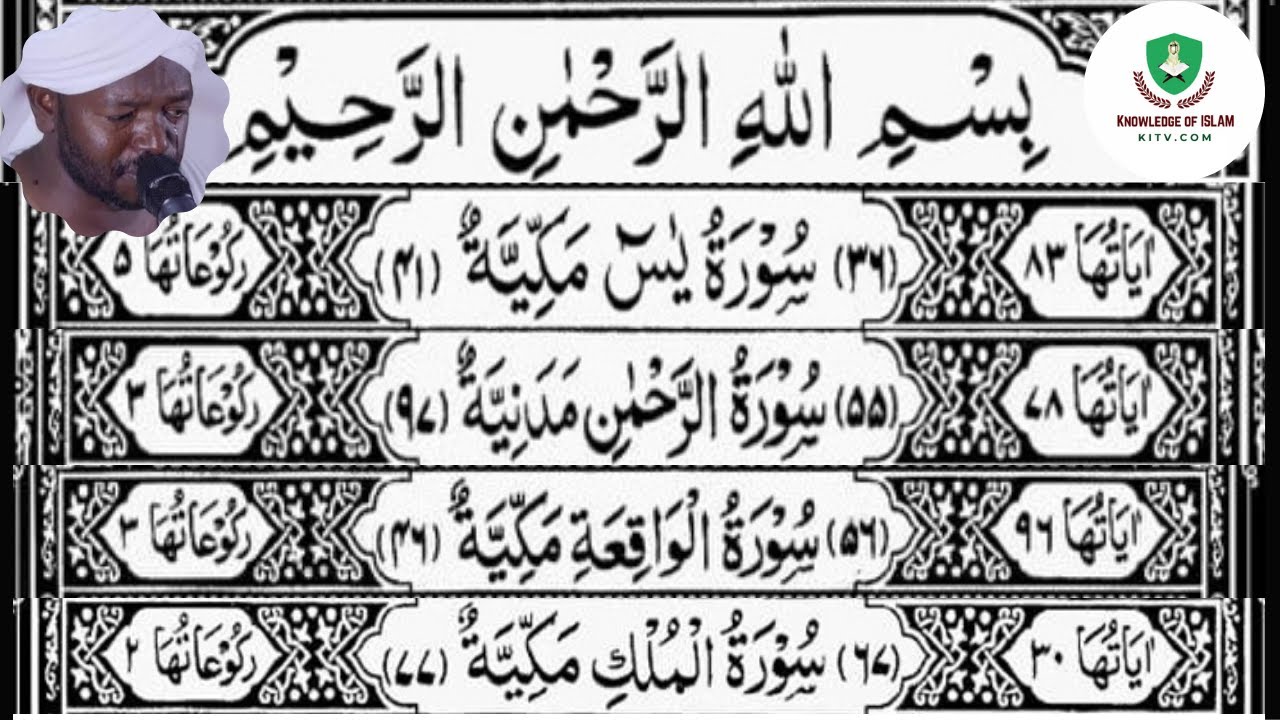 بِسْمِ اللّٰهِ الرَّحْمٰنِ الرَّحِيْمِ
KNOWLEDGE OF ISLAM
KITV.COM
اٰيَاتُهَا ۸۳ (۳۶) سُوْرَةُ يٰسٓ مَكِّيَّةٌ (۴۱) رُكُوْعَاتُهَا ۵
اٰيَاتُهَا ۷۸ (۵۵) سُوْرَةُ الرَّحْمٰنِ مَدَنِيَّةٌ (۹۷) رُكُوْعَاتُهَا ۳
اٰيَاتُهَا ۹۶ (۵۶) سُوْرَةُ الْوَاقِعَةِ مَكِّيَّةٌ (۴۶) رُكُوْعَاتُهَا ۳
اٰيَاتُهَا ۳۰ (۶۷) سُوْرَةُ الْمُلْكِ مَكِّيَّةٌ (۷۷) رُكُوْعَاتُهَا ۲